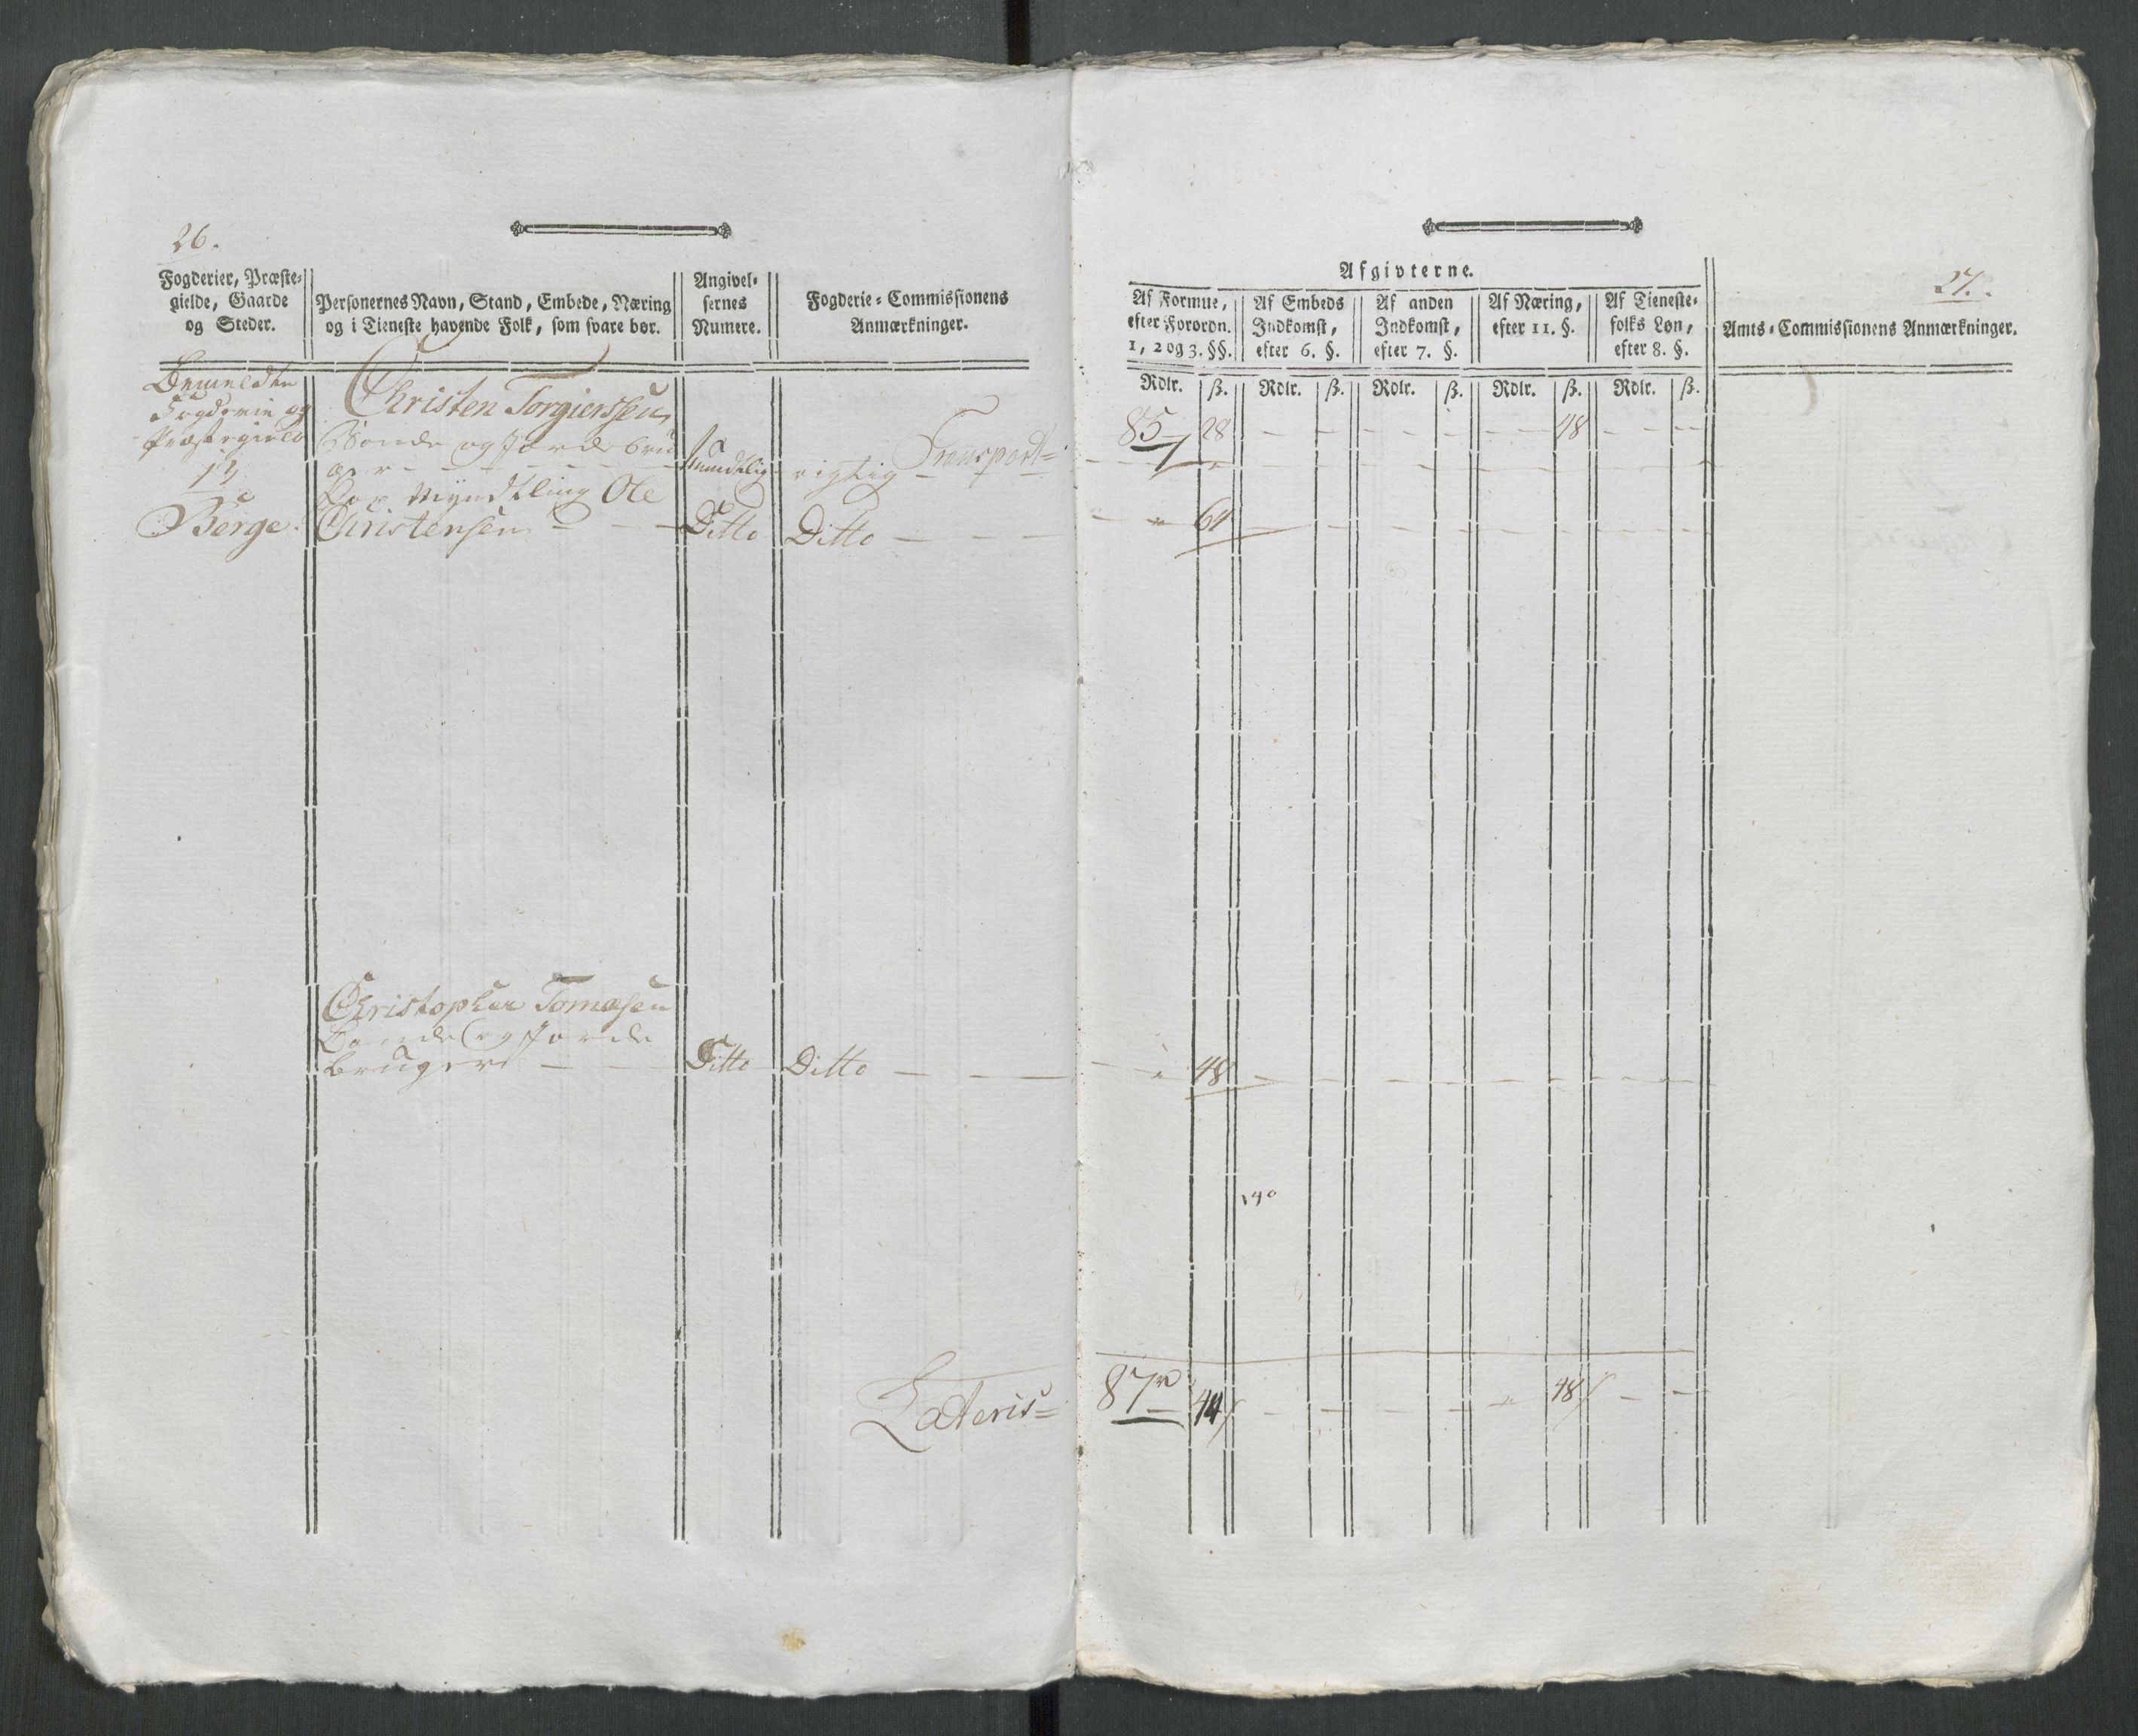 26.
Fogderier, Præste-
gielde, Gaarde
og Steder.
Personernes Navn, Stand, Embede, Næring
og i Tieneste havende Folk, som svare bør.
Angivel-
sernes
Numere.
Fogderie-Commissionens
Anmærkninger.
Bemeldte
Fogderie og
Præstegield
Berge.
Christen Torgierssen
Bonde og Jordebru
ger
Mundtlig
rigtig
Transport
Myndtling Ole
Christensen
Ditto
Ditto
Christopher Tomesen
Bonde og Jorde
bruger
Ditto
Ditto
Lateris
27.
Afgivterne.
Af Formue,
efter Forordn.
1, 2 og 3. §§.
Af Embeds
Indkomst,
efter 6. §.
Af anden
Indkomst,
efter 7. §.
Af Næring,
efter 11. §.
Af Tieneste-
folks Løn,
efter 8. §.
Amts-Commissionens Anmærkninger.
Rdlr. ß. Rdlr. ß. Rdlr. ß. Rdlr. ß. Rdlr. ß.
85 28 48
1
64
48
140
87 44 48